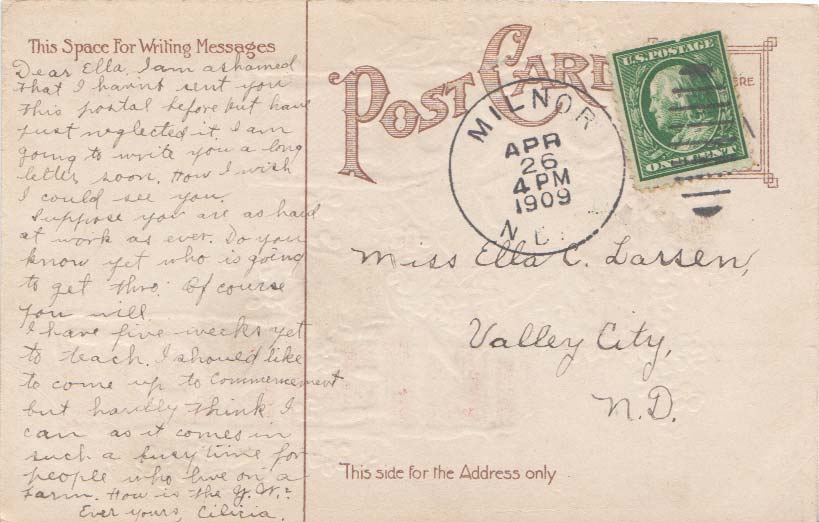 This Space For Writing Messages
Dear Ella, I am ashamed
that I havnt sent you
this postal before but have
just neglected it. I am
going to write you a long
letter soon. How I wish
I could see you.
Suppose you are as hard
at work as ever. Do you
know yet who is going
to get thro. Of course
you will
I have five weeks yet
to teach. I should like
to come up to Commencement
but hardly think I
can as it comes in
such a busy time for
people who live on a
farm. How is the Y.W.?
Ever yours, Cilicia.
POST CARD
MILNOR
APR
26
4 PM
1909
N.D.
U.S. POSTAGE
ONE CENT
ERE
Miss Ella C. Larsen,
Valley City,
N.D.
This side for the Address only